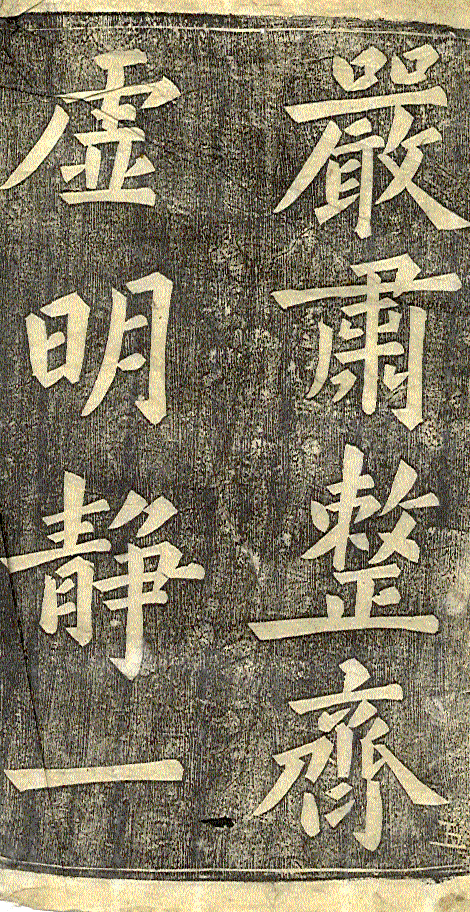 嚴肅整齊
虛明靜一